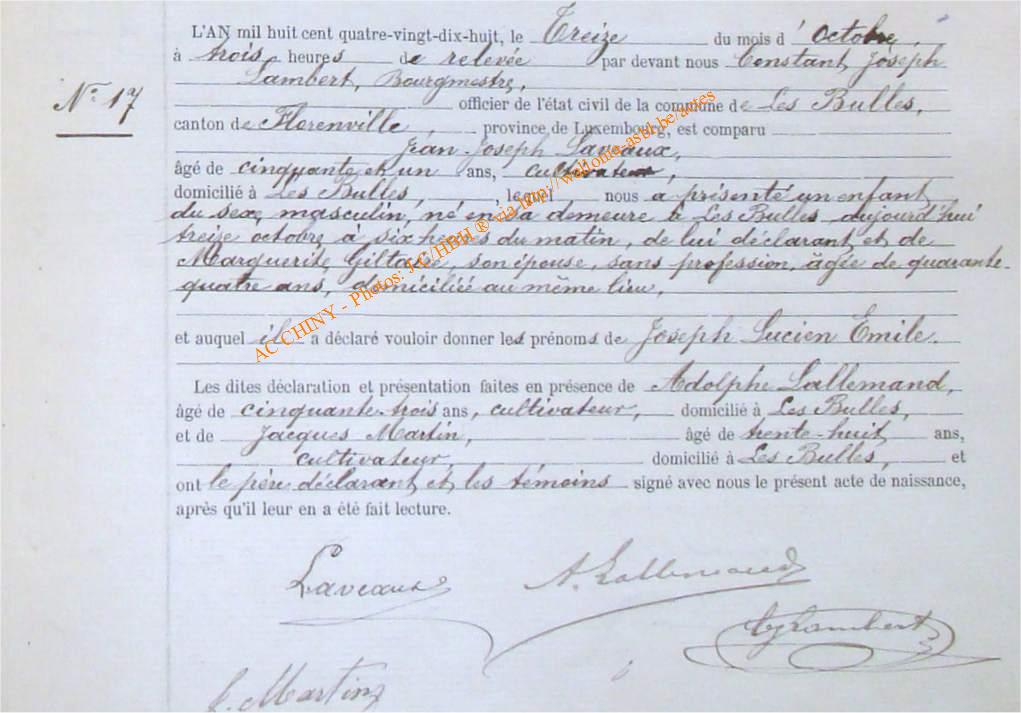 L'AN mil huit cent quatre-vingt-dix-huit, le Treize du mois d'Octobre,
à trois heures de relevée par devant nous Constant Joseph
Lambert, Bourgmestre,
N° 17
officier de l'état civil de la commune de Les Bulles,
canton de Florenville, province de Luxembourg, est comparu
Jean Joseph Laveaux,
âgé de cinquante et un ans, cultivateur,
domicilié à Les Bulles, lequel nous a présenté un enfant
du sexe masculin, né en sa demeure à Les Bulles, aujourd'hui
treize octobre à six heures du matin, de lui déclarant et de
Marguerite, son épouse, sans profession, âgée de quarante-
quatre ans, domiciliée au même lieu,
et auquel il a déclaré vouloir donner les prénoms de Joseph Lucien Emile.
Les dites déclaration et présentation faites en présence de Adolphe Lallemand,
âgé de cinquante-trois ans, cultivateur, domicilié à Les Bulles,
et de Jacques Martin, âgé de trente-huit ans,
cultivateur, domicilié à Les Bulles, et
ont le père déclarant et les témoins signé avec nous le présent acte de naissance,
après qu'il leur en a été fait lecture.
Laveaux
A. Lallemand
CJLambert
J. Martin
AC CHINY - Photos: J-C/HBH ® via http://wallonia-asbl.be/actes